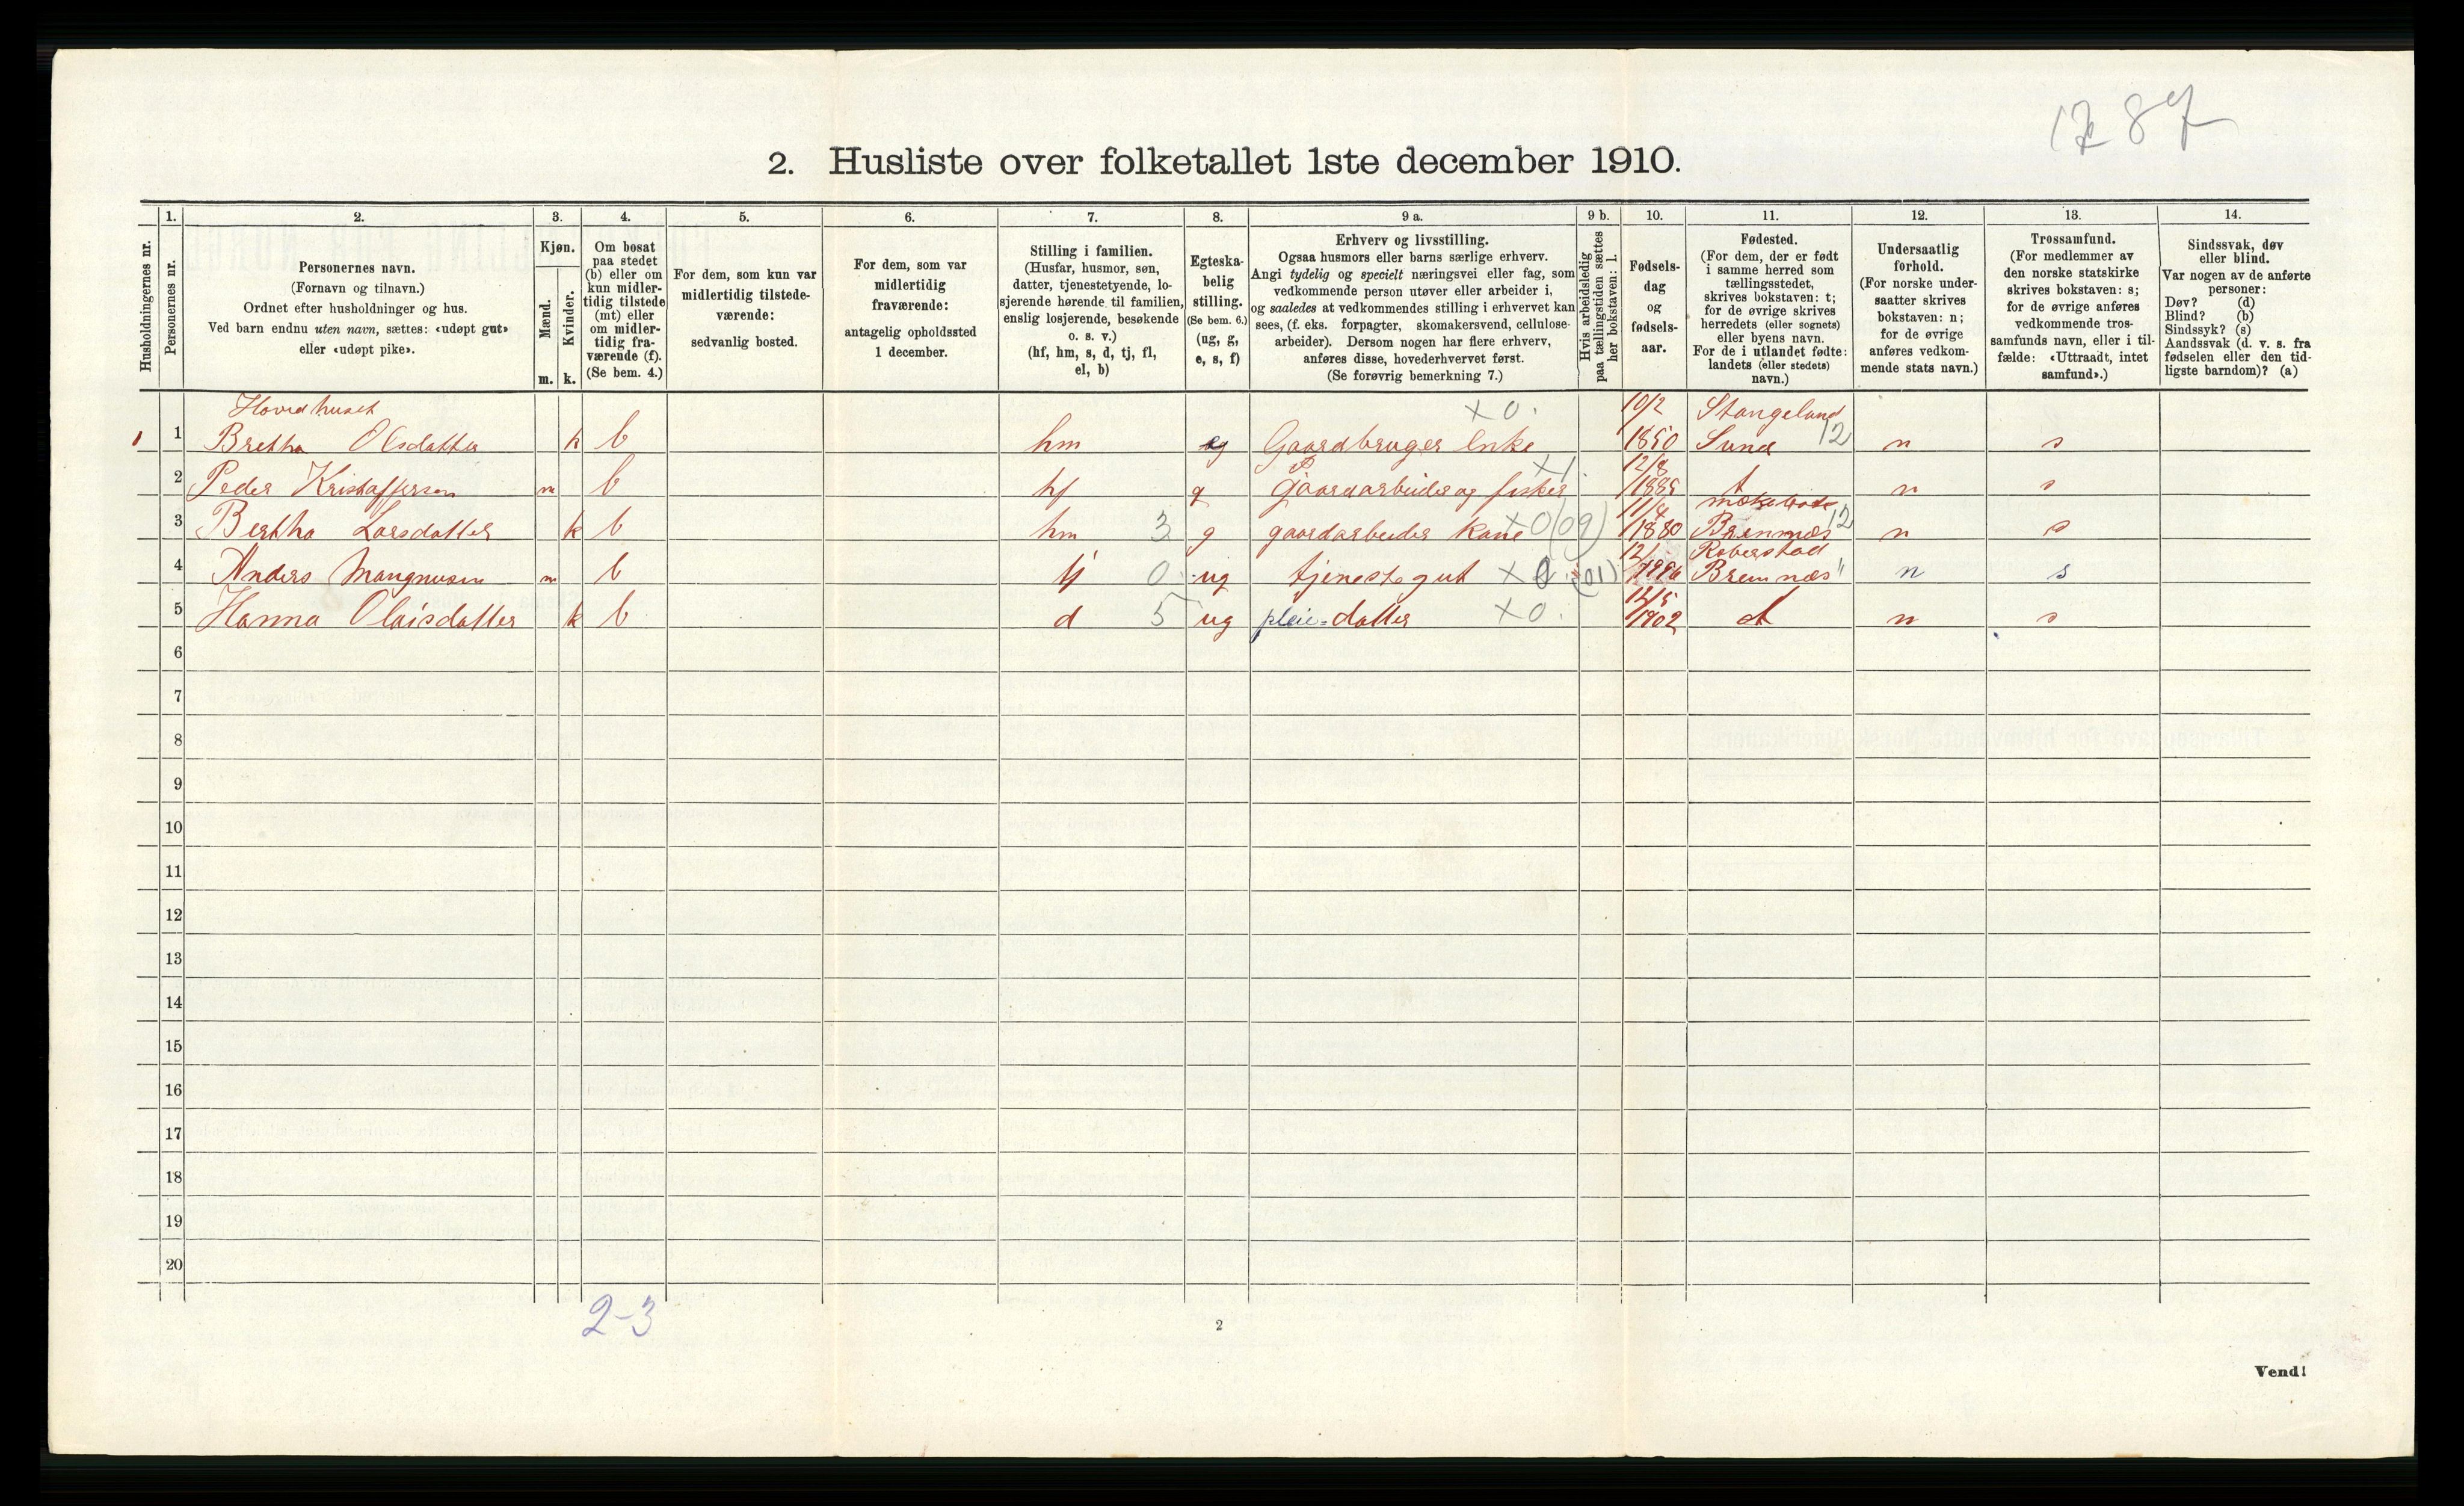 1287
2. Husliste over folketallet 1ste december 1910.
Husholdningernes nr.
1.
Personernes nr.
2.
Personernes navn.
(Fornavn og tilnavn.)
Ordnet efter husholdninger og hus.
Ved barn endnu uten navn, sættes: «udøpt gut»
eller «udøpt pike».
3.
Kjøn.
Mænd.
Kvinder.
m. k.
4.
Om bosat
paa stedet
(b) eller om
kun midler-
tidig tilstede
(mt) eller
om midler-
tidig fra-
værende (f).
(Se bem. 4.)
5.
For dem, som kun var
midlertidig tilstede-
værende:
sedvanlig bosted.
6.
For dem, som var
midlertidig
fraværende:
antagelig opholdssted
1 december.
7.
Stilling i familien.
(Husfar, husmor, søn,
datter, tjenestetyende, lo-
sjerende hørende til familien,
enslig losjerende, besøkende
o. s. v.)
(hf, hm, s, d, tj, fl,
el, b)
8.
Egteska-
belig
stilling.
(Se bem. 6.)
(ug, g,
e, s, f)
9 a.
Erhverv og livsstilling.
Ogsaa husmors eller barns særlige erhverv.
Angi tydelig og specielt næringsvei eller fag, som
vedkommende person utøver eller arbeider i,
og saaledes at vedkommendes stilling i erhvervet kan
sees, (f. eks. forpagter, skomakersvend, cellulose-
arbeider). Dersom nogen har flere erhverv,
anføres disse, hovederhvervet først.
(Se forøvrig bemerkning 7.)
9 b.
Hvis arbeidsledig
paa tællingstiden sættes
her bokstaven: l.
10.
Fødsels-
dag
og
fødsels-
aar.
11.
Fødested.
(For dem, der er født
i samme herred som
tællingsstedet,
skrives bokstaven: t;
for de øvrige skrives
herredets (eller sognets)
eller byens navn.
For de i utlandet fødte:
landets (eller stedets)
navn.)
12.
Undersaatlig
forhold.
(For norske under-
saatter skrives
bokstaven: n;
for de øvrige
anføres vedkom-
mende stats navn.)
13.
Trossamfund.
(For medlemmer av
den norske statskirke
skrives bokstaven: s;
for de øvrige anføres
vedkommende tros-
samfunds navn, eller i til-
fælde: «Uttraadt, intet
samfund».)
14.
Sindssvak, døv
eller blind.
Var nogen av de anførte
personer:
Døv? (d)
Blind? (b)
Sindssyk? (s)
Aandssvak (d. v. s. fra
fødselen eller den tid-
ligste barndom)? (a)
Hovedhuset x 0. 10/2 Stangeland
1 1 Bretha Olsdatter k b hm Gaardbruger Enke 1850 Sund 12 n s
x1 12/8
2 Peder Kristoffersen m b hf g gaardarbeider og fisker 1885 t n s
11/4
3 Bertha Larsdatter k b hm 3 g gaardarbeider kone x0(09) 1880 Bremnæs 12 n s
4 Anders Mangnusen m b tj 0 ug tjenestegut x 0 (01) Bremnæs " n s
12/5
5 Hanna Olaisdatter k b d 5 ug pleie=datter x0. 1902 t n s
6
7
8
9
10
11
12
13
14
15
16
17
18
19
20
2-3
2
Vend!